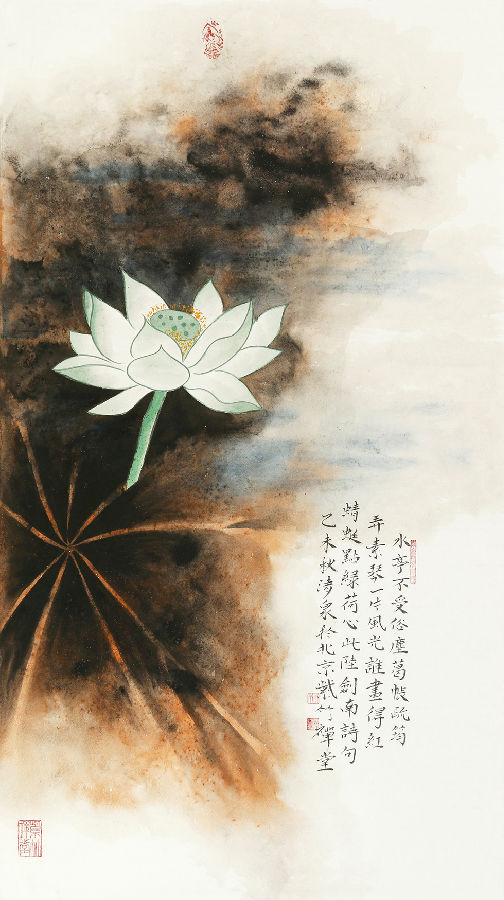 水亭不受俗塵葛帳疏筠
弄素琴一片風光誰畫得紅
蜻蜓點綠荷心此陸劍南詩句
乙未秋清泉於北京紫竹禪堂